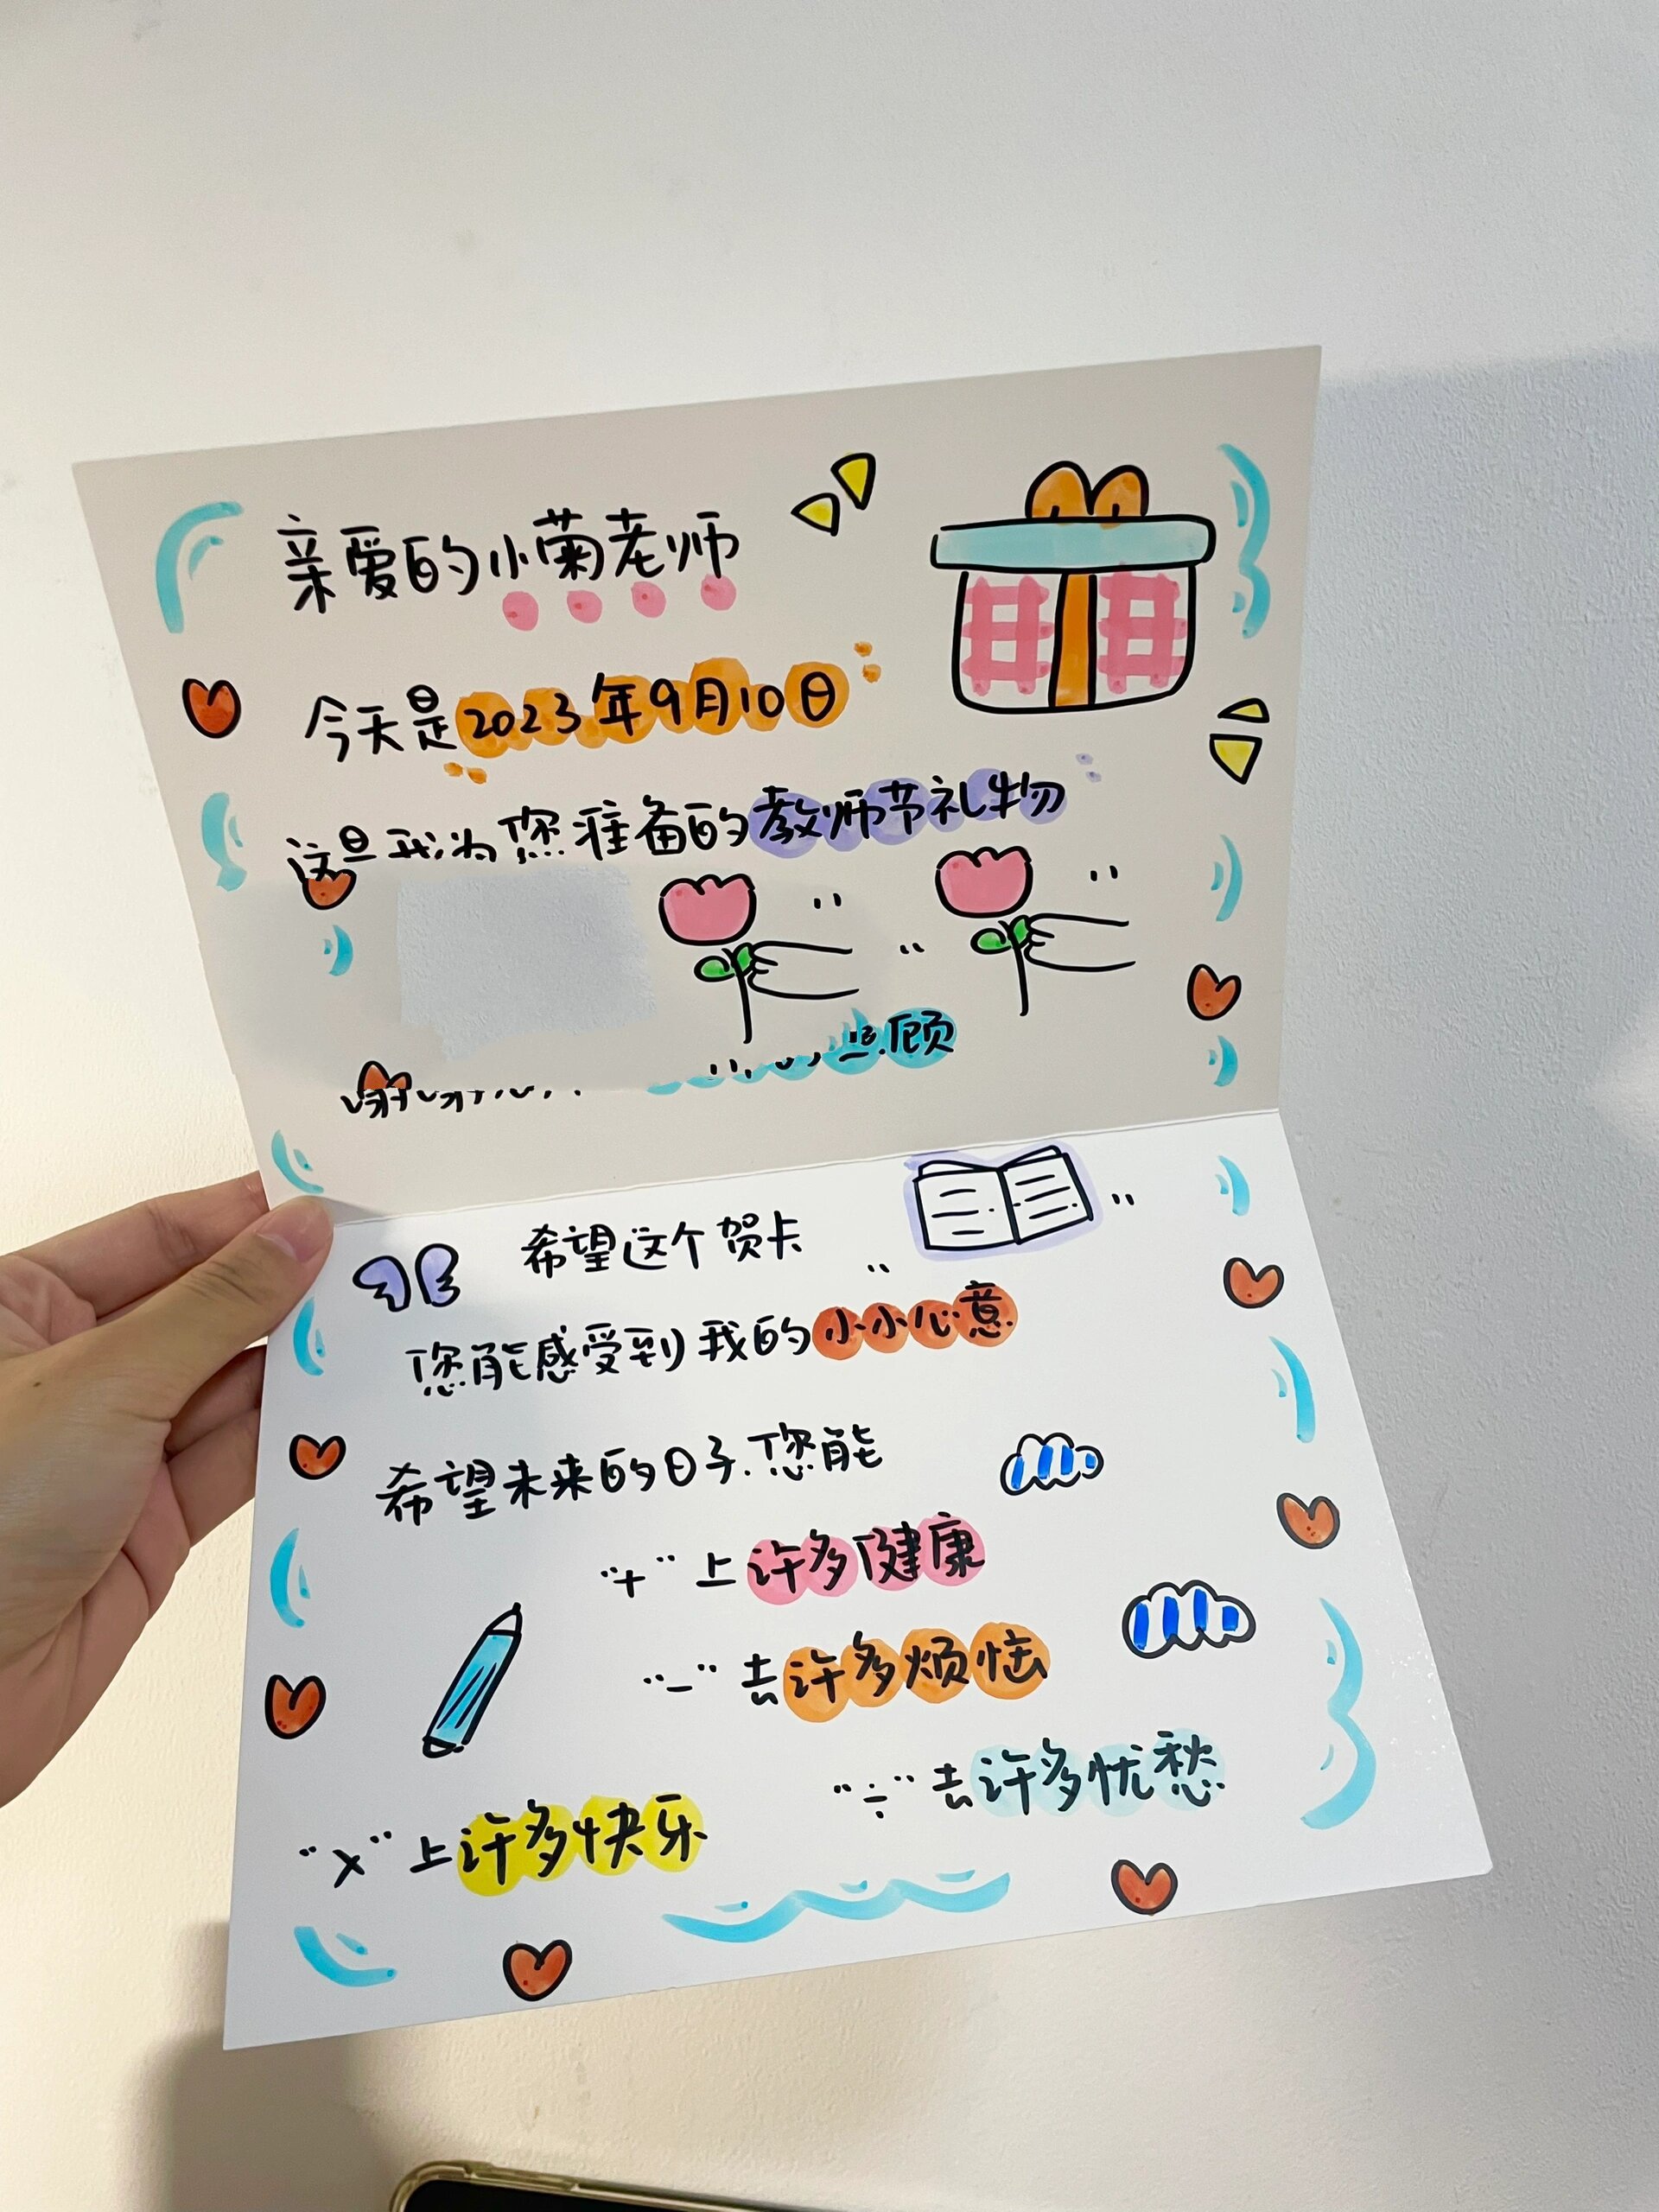 亲爱的小菊老师
今天是2023年9月10日
这是我为您准备的教师节礼物
照顾
希望这个贺卡
您能感受到我的小小心意
希望未来的日子.您能
"+"上许多健康
"-"去许多烦恼
"÷"去许多忧愁
"×"上许多快乐